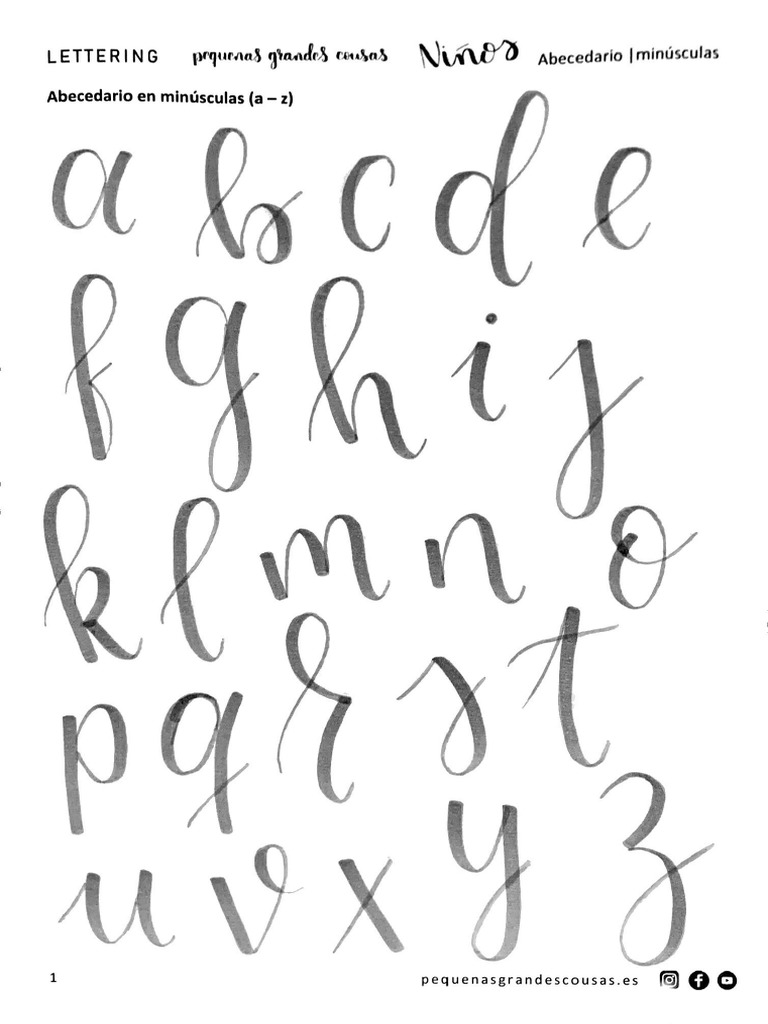 LETTERING pequenas grandes cousas Niños Abecedario | minúsculas
Abecedario en minúsculas (a – z)
a b c d e
f g h i j
k l m n o
p q r s t
u v x y z
1 pequenasgrandescousas.es